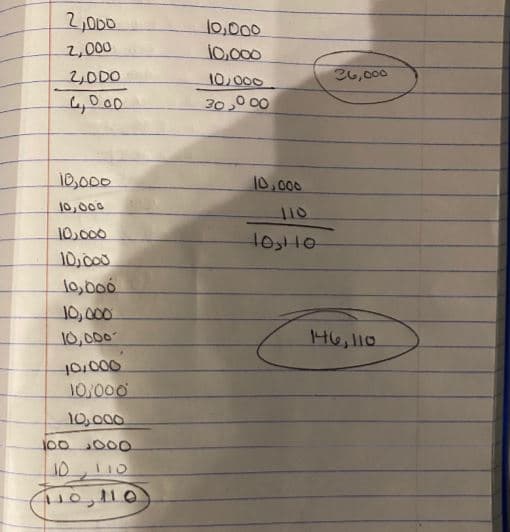 2,000
2,000
2,000
6,000
10,000
10,000
10,000
30,000
36,000
10,000
10,000
10,000
10,000
10,000
10,000
10,000
10,000
10,000
10,000
100,000
10,110
110,110
10,000
110
10,110
146,110